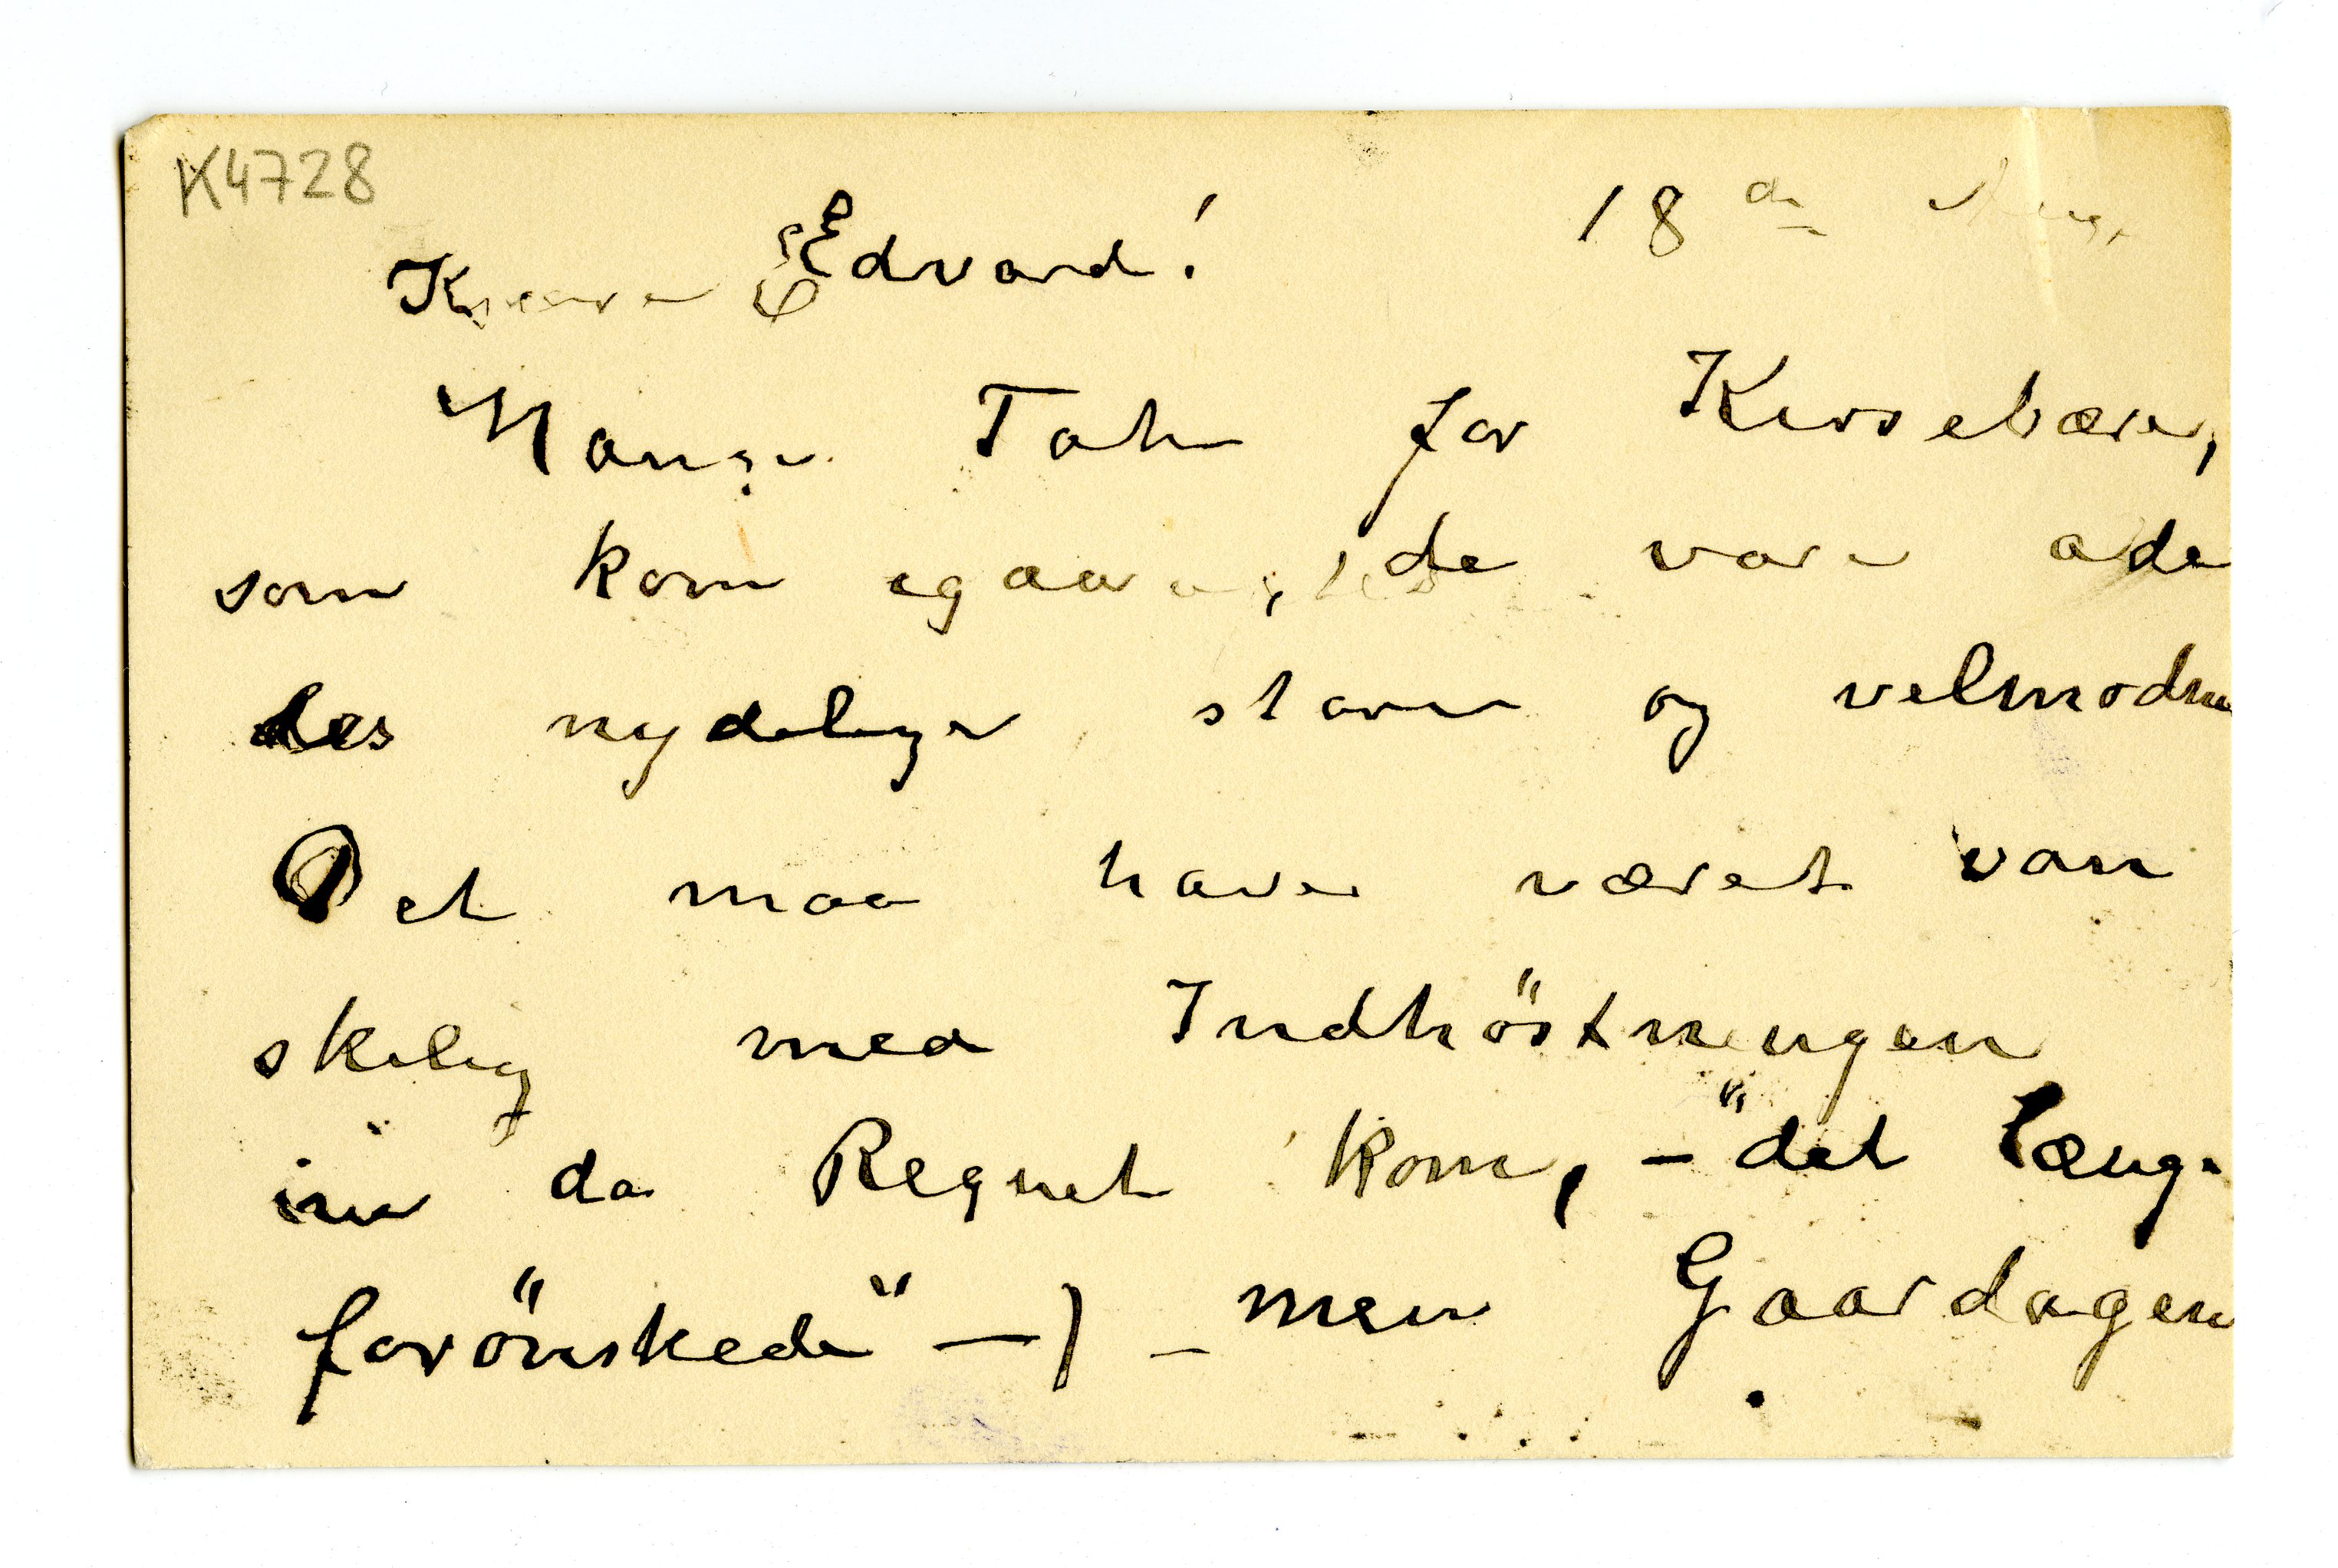 K4728
18de Aug.
Kjære Edvard!
Mange Tak for Kirsebær,
som kom igaar, de vare alde
les nydelige store og velmodne
Det maa have været van
skelig med Indhöstningen
in da Regnet kom, – "det læng.
forönskede" –) – men Gaardagen